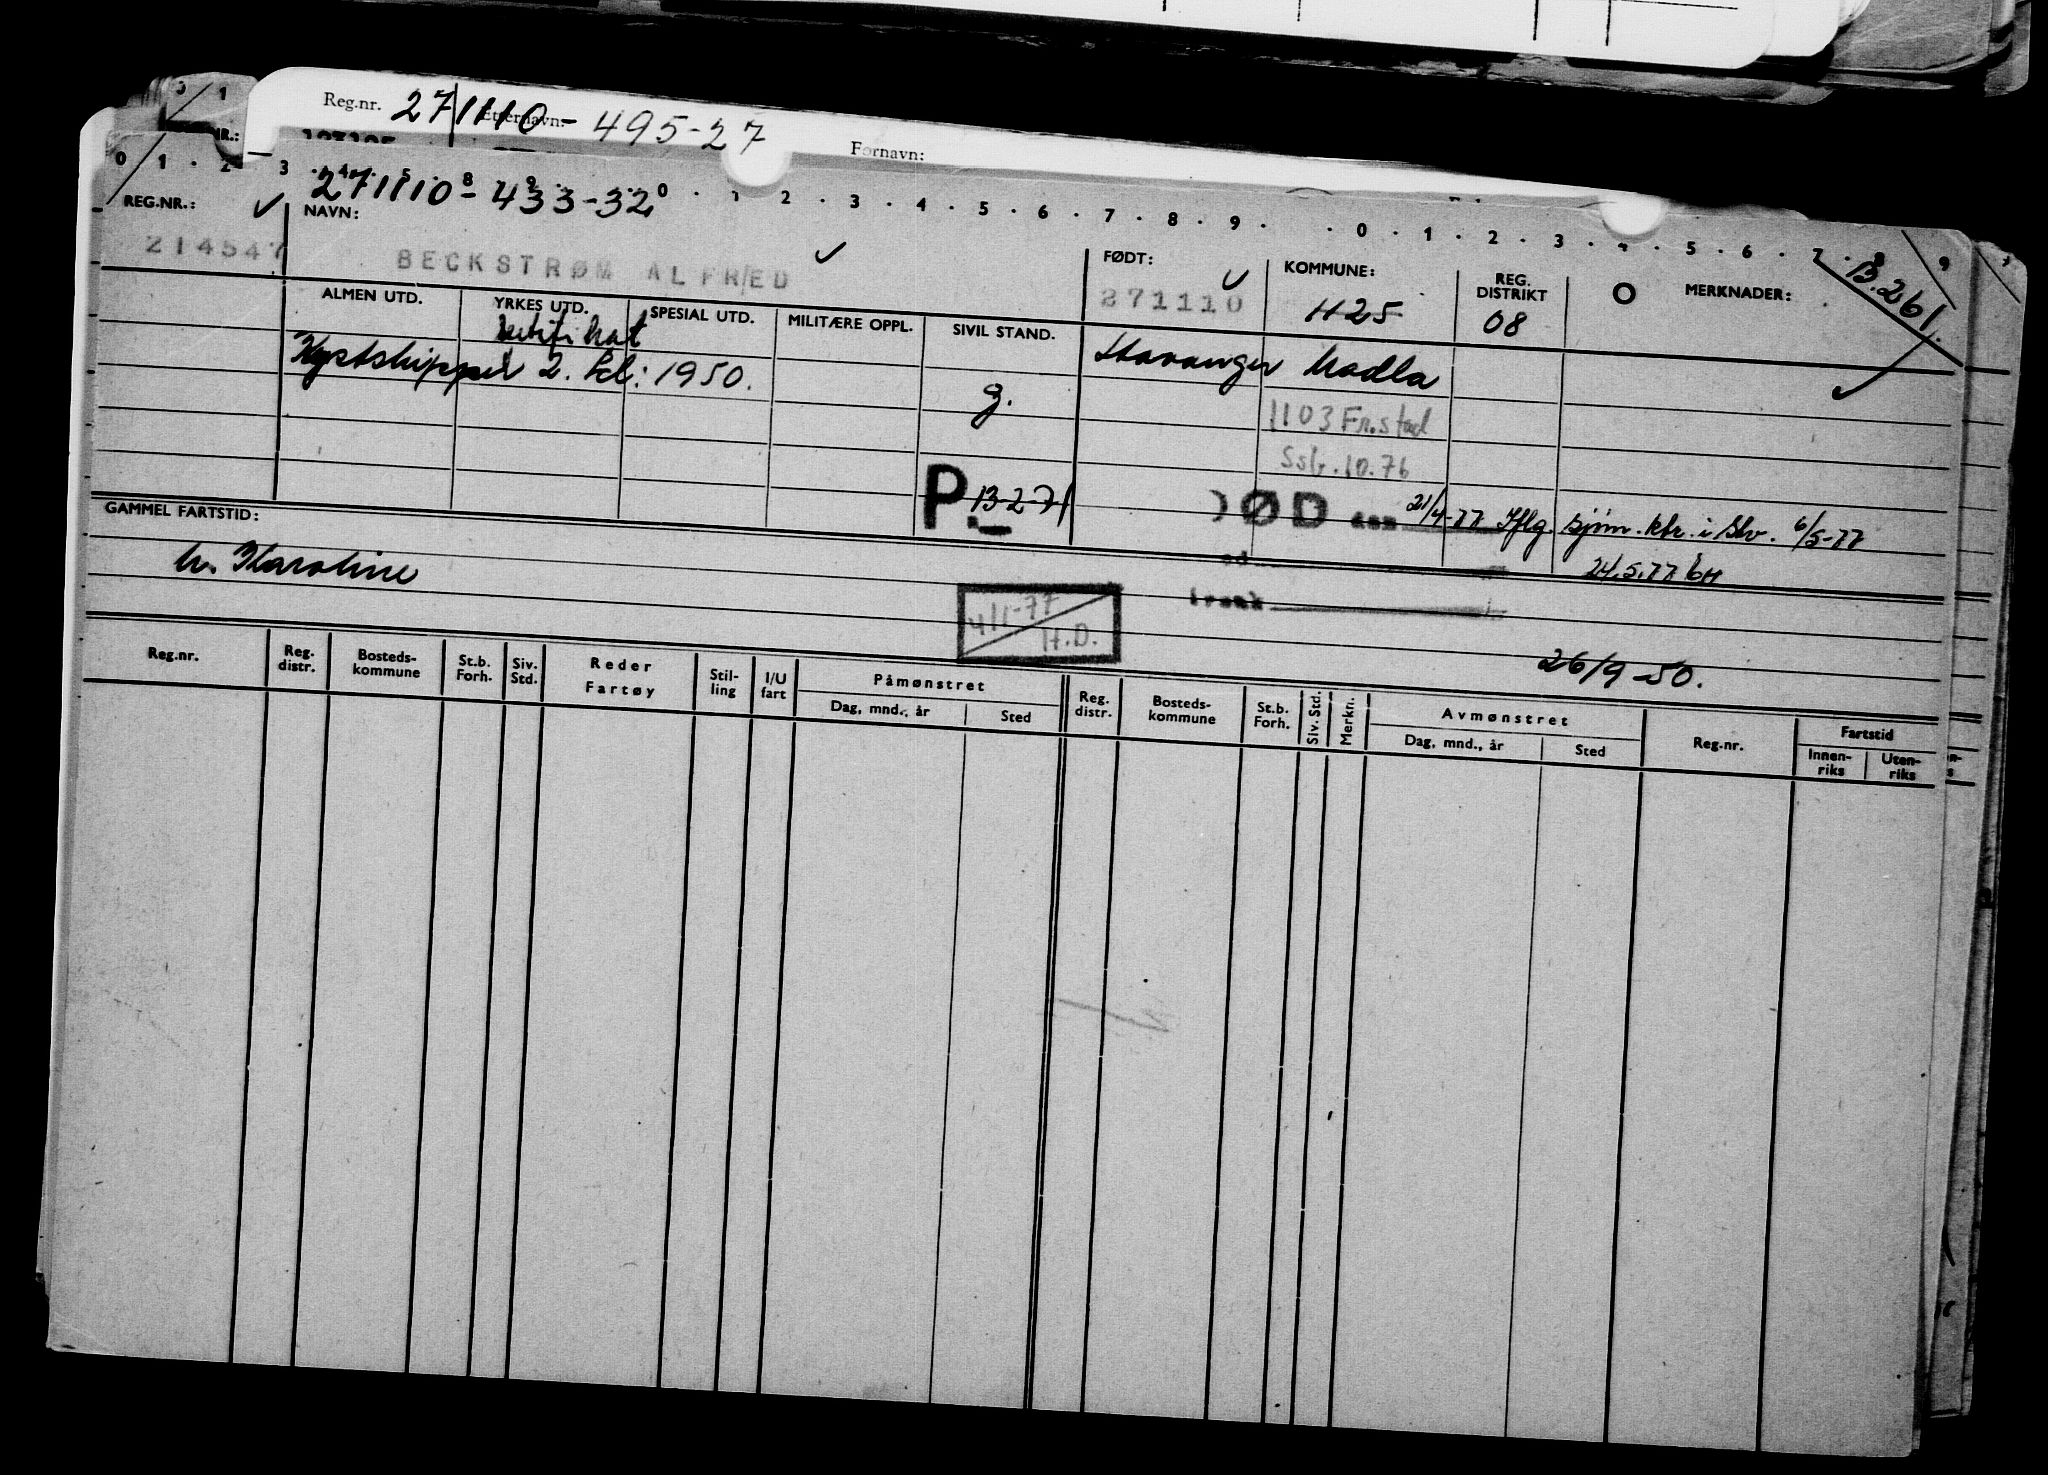 Reg.nr. 271110-495-27
Etternavn:
Fornavn:
271110-433-32
REG.NR.:
NAVN:
214547
BECKSTRØM ALFRED
FØDT:
271110
KOMMUNE:
1125
REG. DISTRIKT
08
MERKNADER:
B.261
ALMEN UTD. YRKES UTD. SPESIAL UTD. MILITÆRE OPPL. SIVIL STAND.
Kystskipper 2. kl: 1950.
g.
Stavanger Madla
1103 Fr.stad
Ssb.10.76
P. 13-2-71
ØD den 21/4-77 Iflg. sjøm.ktr. i Slv. 6/5-77
24.5.77
GAMMEL FARTSTID:
h. Karoline
4/1-77
H.D.
26/9-50.
Reg.nr. Reg. distr. Bosteds-kommune St.b. Forh. Siv. Std. Reder Fartøy Stil-ling I/U fart Påmønstret Reg. distr. Bosteds-kommune St.b. Forh. Siv. Std. Merkn. Avmønstret Reg.nr. Fartstid
Dag, mnd., år Sted Dag, mnd., år Sted Innen-riks Uten-riks